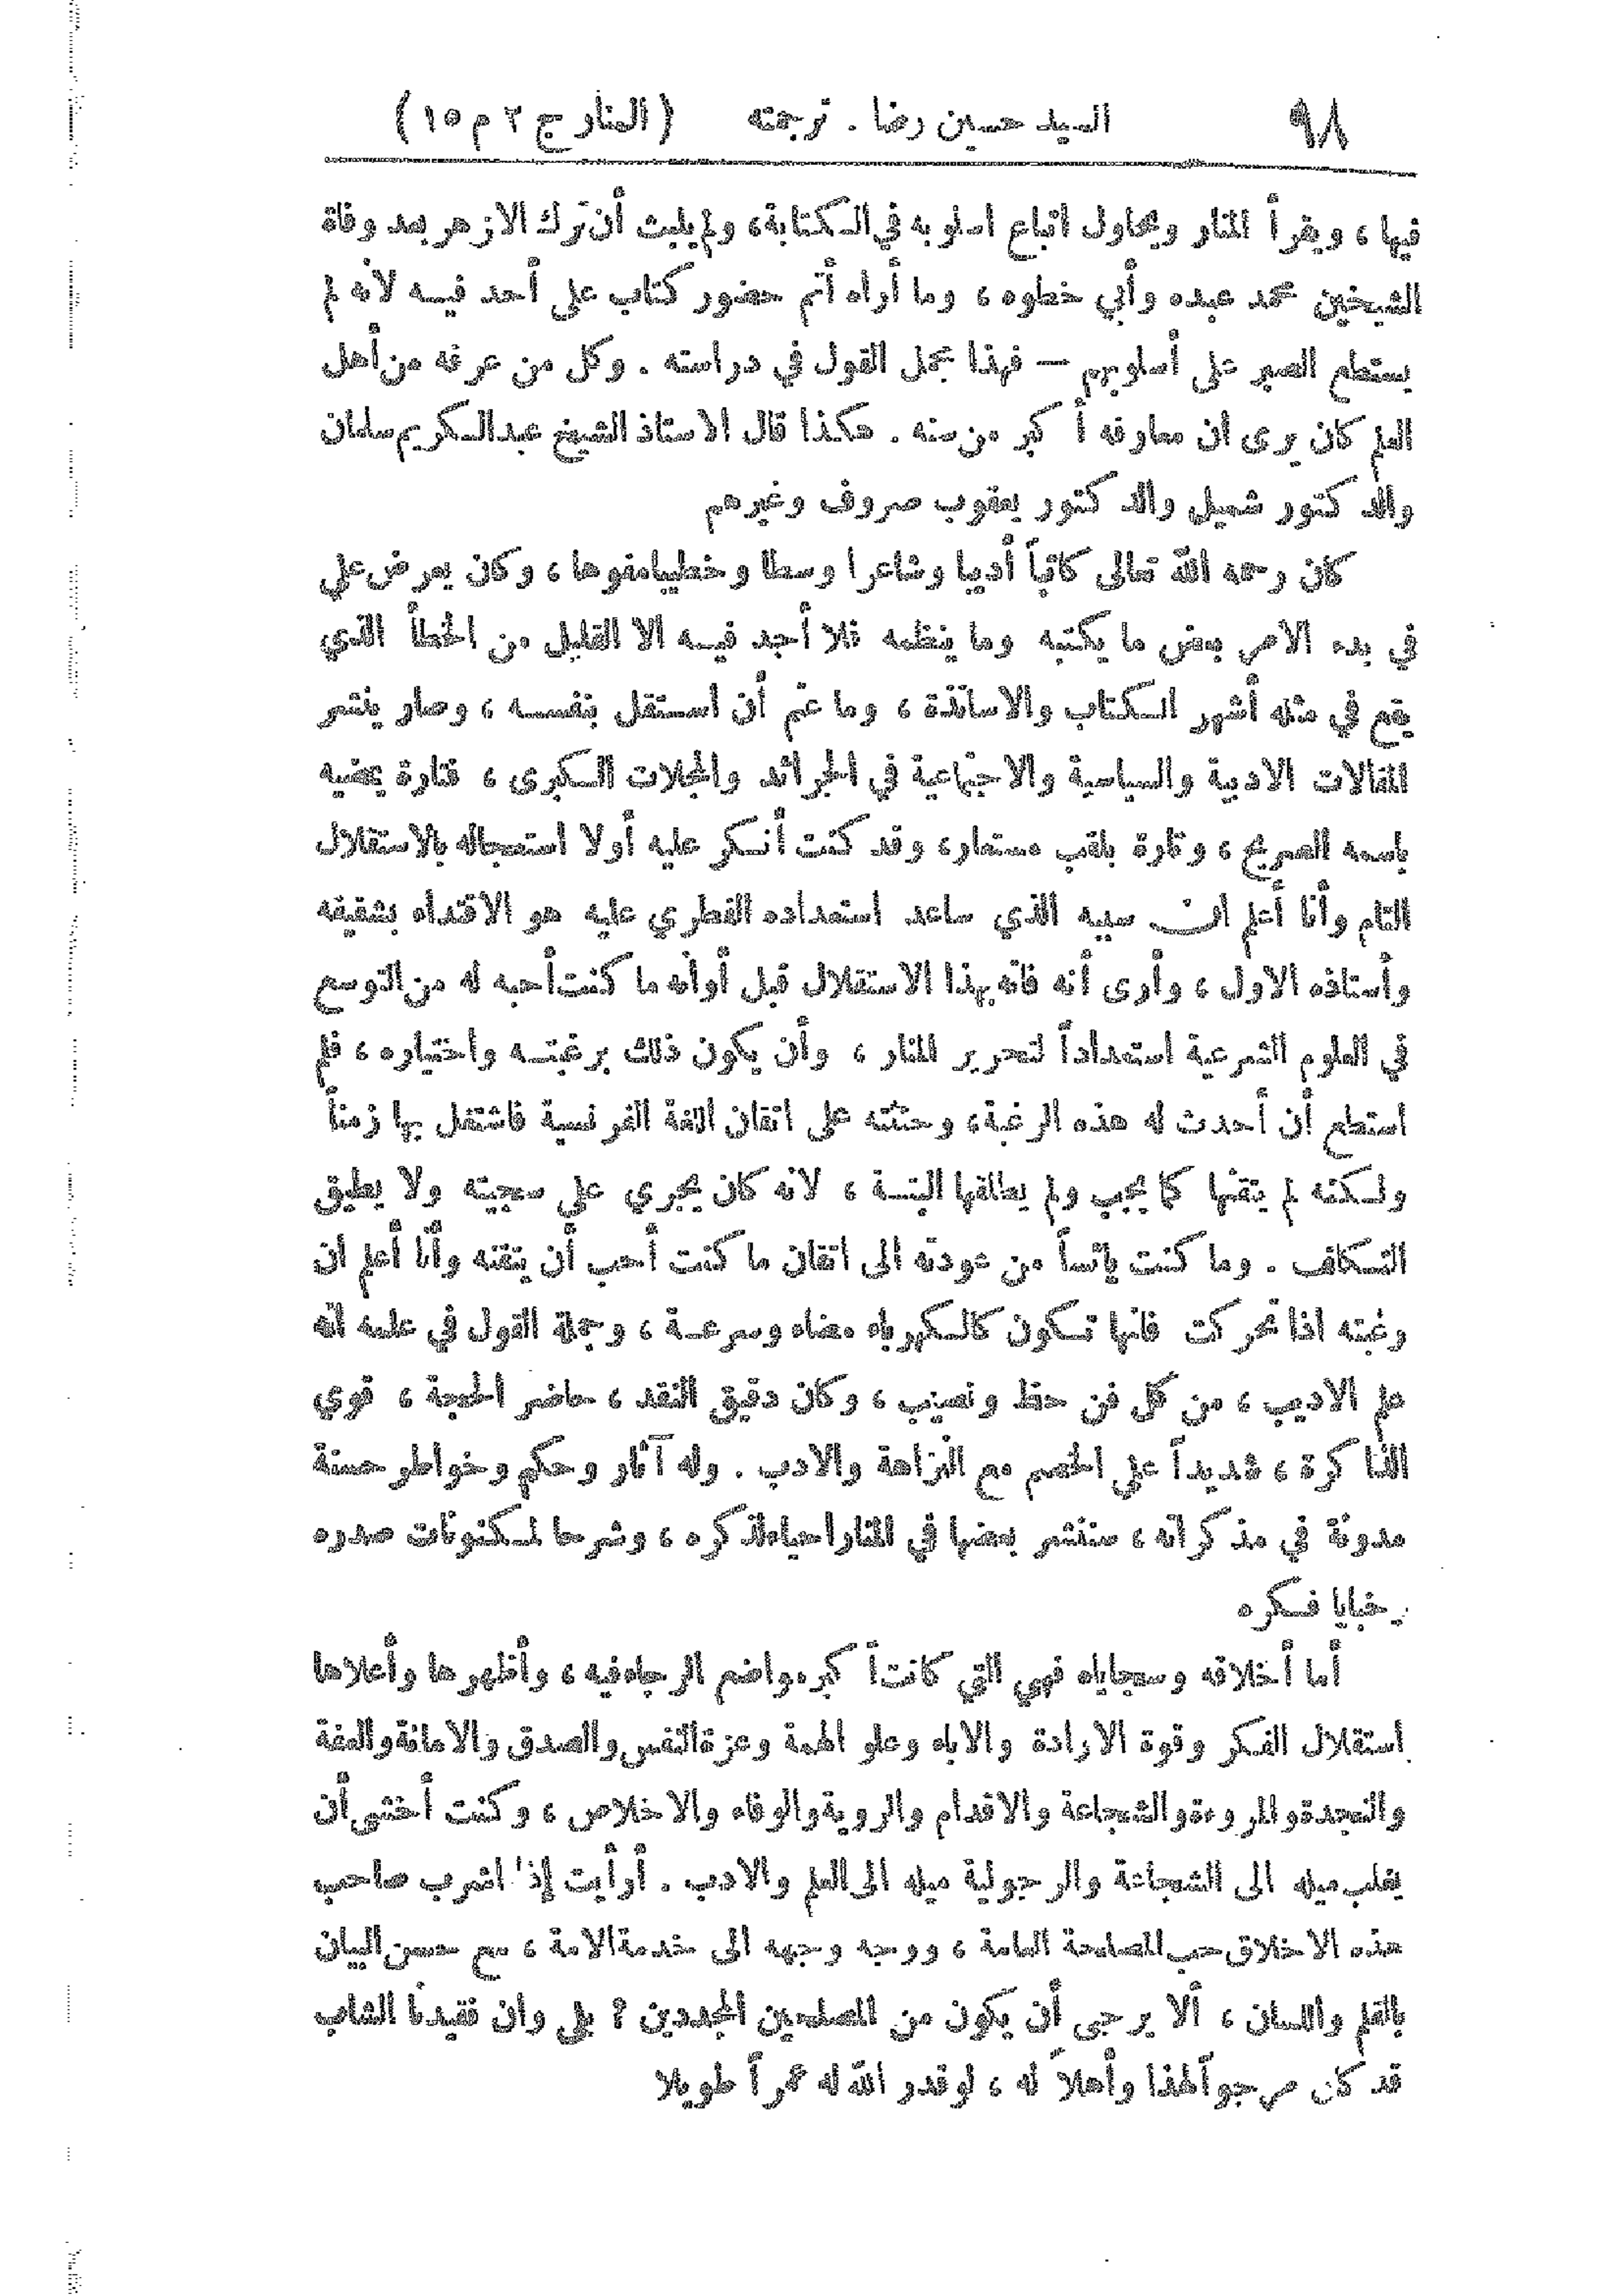 ٩٨ السيد حسين رضا . ترجمته ( المنار ج ٢ م ١٥ )
فيها ، ويقرأ المنار ويحاول اتباع اسلوبه في الكتابة ، ولم يلبث أن ترك الازهر بعد وفاة
الشيخين محمد عبده وأبي خطوه ، وما أراه أتم حضور كتاب على أحد فيه لانه لم
يستطع الصبر على أسلوبهم — فهذا مجمل القول في دراسته . وكل من عرفه من أهل
العلم كان يرى ان معارفه أكبر من سنه . هكذا قال الاستاذ الشيخ عبدالكريم سلمان
والدكتور شميل والدكتور يعقوب صروف وغيرهم
كان رحمه الله تعالى كاتباً أديبا وشاعرا وسطا وخطيبا مفوها ، وكان يعرض علي
في بدء الامر بعض ما يكتبه وما ينظمه فلا أجد فيه الا القليل من الخطأ الذي
يقع في مثله أشهر الكتاب والاساتذة ، وما عتم أن استقل بنفسه ، وصار ينشر
المقالات الادبية والسياسية والاجتماعية في الجرائد والمجلات الكبرى ، فتارة يمضيه
باسمه الصريح ، وتارة بلقب مستعار، وقد كنت أنكر عليه أولا استعجاله بالاستقلال
التام وأنا أعلم ان سببه الذي ساعد استعداده الفطري عليه هو الاقتداء بشقيقه
وأستاذه الاول ، وأرى أنه فاته بهذا الاستقلال قبل أوانه ما كنت أحبه له من التوسع
في العلوم الشرعية استعداداً لتحرير المنار ، وأن يكون ذلك برغبته واختياره ، فلم
استطع أن أحدث له هذه الرغبة، وحثثته على اتقان اللغة الفرنسية فاشتغل بها زمناً
ولكنه لم يتقنها كما يجب ولم يطلقها البتة ، لانه كان يجري على سجيته ولا يطيق
التكلف . وما كنت يائساً من عودته الى اتقان ما كنت أحب أن يتقنه وأنا أعلم ان
رغبته اذا تحركت فانها تكون كالكهرباء مضاء وسرعة ، وجملة القول في علمه انه
علم الاديب ، من كل فن حظ ونصيب ، وكان دقيق النقد ، حاضر الحجة ، قوي
الذاكرة ، شديداً على الخصم مع النزاهة والادب . وله آثار وحكم وخواطر حسنة
مدونة في مذكراته ، سننشر بعضها في المنار احياء لذكره ، وشرحا لمكنونات صدره
وخبايا فكره
أما أخلاقه وسجاياه فهي التي كانت أكبر مواضع الرجاء فيه ، وأظهرها وأعلاها
استقلال الفكر وقوة الارادة والاباء وعلو الهمة وعزة النفس والصدق والامانة والعفة
والنجدة والمروءة والشجاعة والاقدام والروية والوفاء والاخلاص ، وكنت أخشى أن
يغلب ميله الى الشجاعة والرجولية ميله الى العلم والادب . أرأيت إذا اشرب صاحب
هذه الاخلاق حب المصلحة العامة ، ووجه وجهه الى خدمة الامة ، مع حسن البيان
بالقلم واللسان ، ألا يرجى أن يكون من المصلحين المجددين ؟ بلى وان فقيدنا الشاب
قد كان مرجواً لهذا وأهلاً له ، لو قدر الله له عمراً طويلا